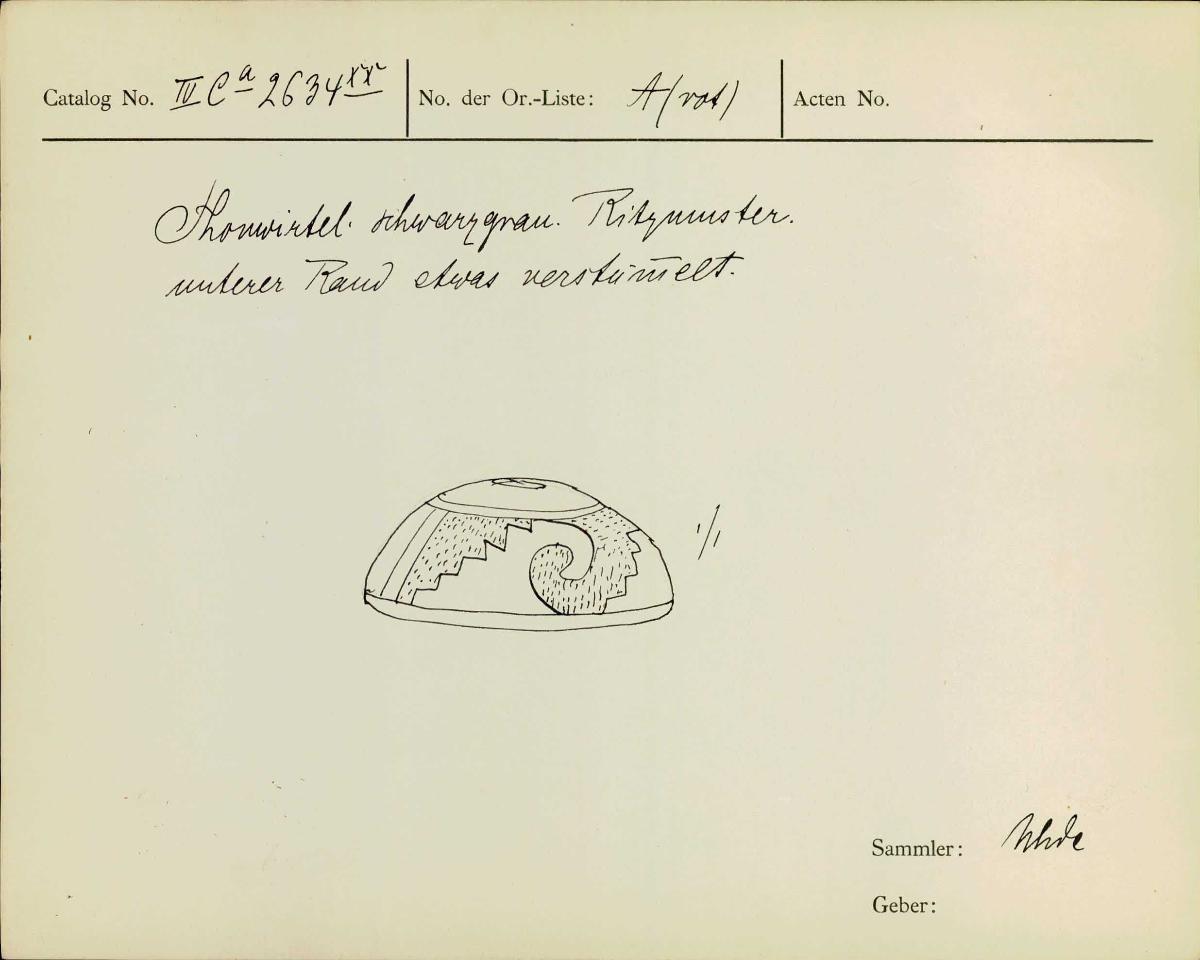 Catalog No. IV Ca 2634xx No. der Or.-Liste: A (rot) Acten No.
Thonwirtel. schwarzgrau. Ritzmuster.
unterer Rand etwas verstüm̄elt.
1/1
Sammler: Uhde
Geber: